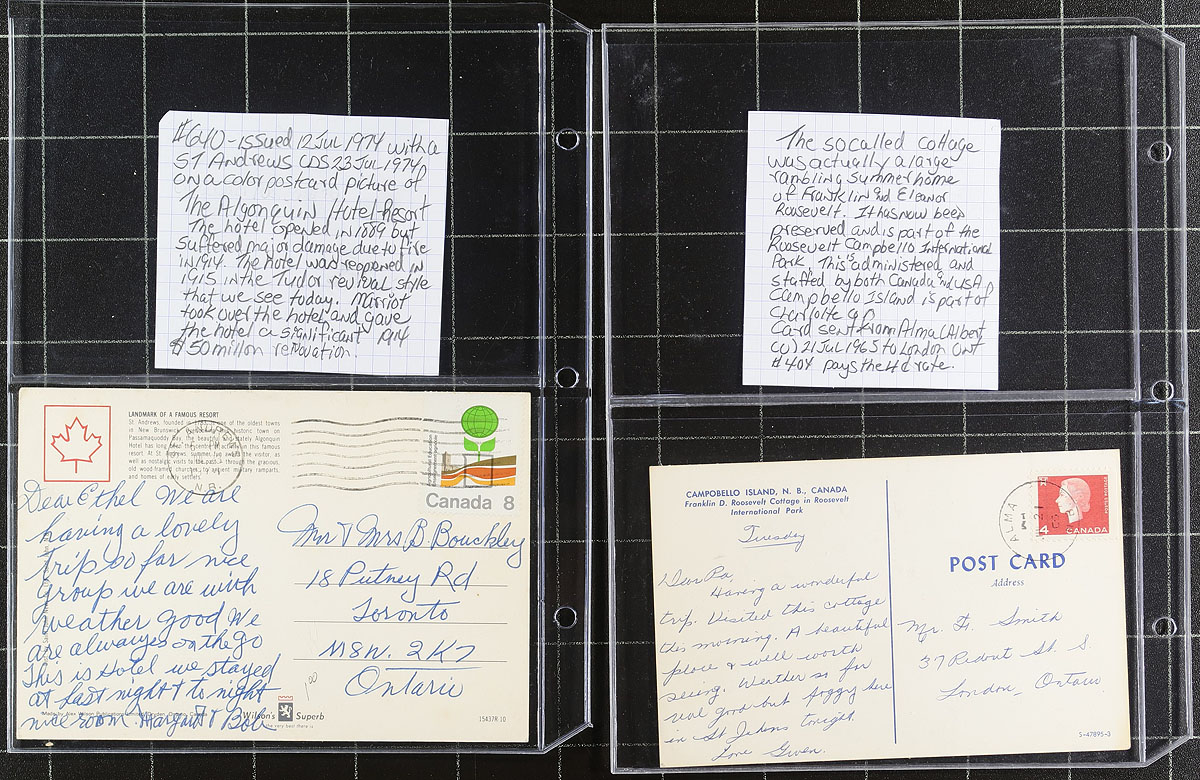 #640 - issued 12 Jul 1974 with a
ST Andrews CDS 23 Jul 1974
on a color postcard picture of
The Algonquin Hotel-Resort
The hotel opened in 1889 but
suffered major damage due to fire
in 1914. The hotel was reopened in
1915 in the Tudor revival style
that we see today. Mirriot
took over the hotel and gave
the hotel a significant 1914
$50 millon renovation.
The so called cottage
was actually a large
rambling summer home
of Franklin and Eleanor
Roosevelt. It has now been
preserved and is part of the
Roosevelt Campbello International
Park. This is administered and
staffed by both Canada and USA
Campbello Island is part of
Charlotte
Card sent from Alma (Albert
Co) 21 Jul 1965 to London Ont
#404 pays the 4¢ rate.
LANDMARK OF A FAMOUS RESORT
St. Andrews, founded in one of the oldest towns
in New Brunswick historic town on
Passamaquoddy Bay, the beautiful and stately Algonquin
Hotel has long been the centre of activity in this famous
resort. At St. Andrews, summer fun awaits the visitor, as
well as nostalgic visits to the past through the gracious,
old wood-framed churches, to ancient military ramparts,
and homes of early settlers.
N.B.
Canada 8
Dear Ethel We are
having a lovely
trip so far nice
group we are with
weather good We
are always on the go
This is Hotel we stayed
at last night & to night
nice room Margaret & Bob
Mr & Mrs B Bouckley
18 Putney Rd
Toronto
M8W. 2K7
Ontario
1.00
Wilson's Superb
the very best there is
15437R 10
CAMPOBELLO ISLAND, N. B., CANADA
Franklin D. Roosevelt Cottage in Roosevelt
International Park
Tuesday
Dear Pa,
Having a wonderful
trip. Visited this cottage
this morning. A beautiful
place & well worth
seeing. Weather so far
real good but foggy here
in St Johns tonight.
Love Gwen.
ALMA
4 CANADA
POST CARD
Address
Mr. Fr. Smith
37 Ridout St. S.
London, Ontario.
S-47895-3